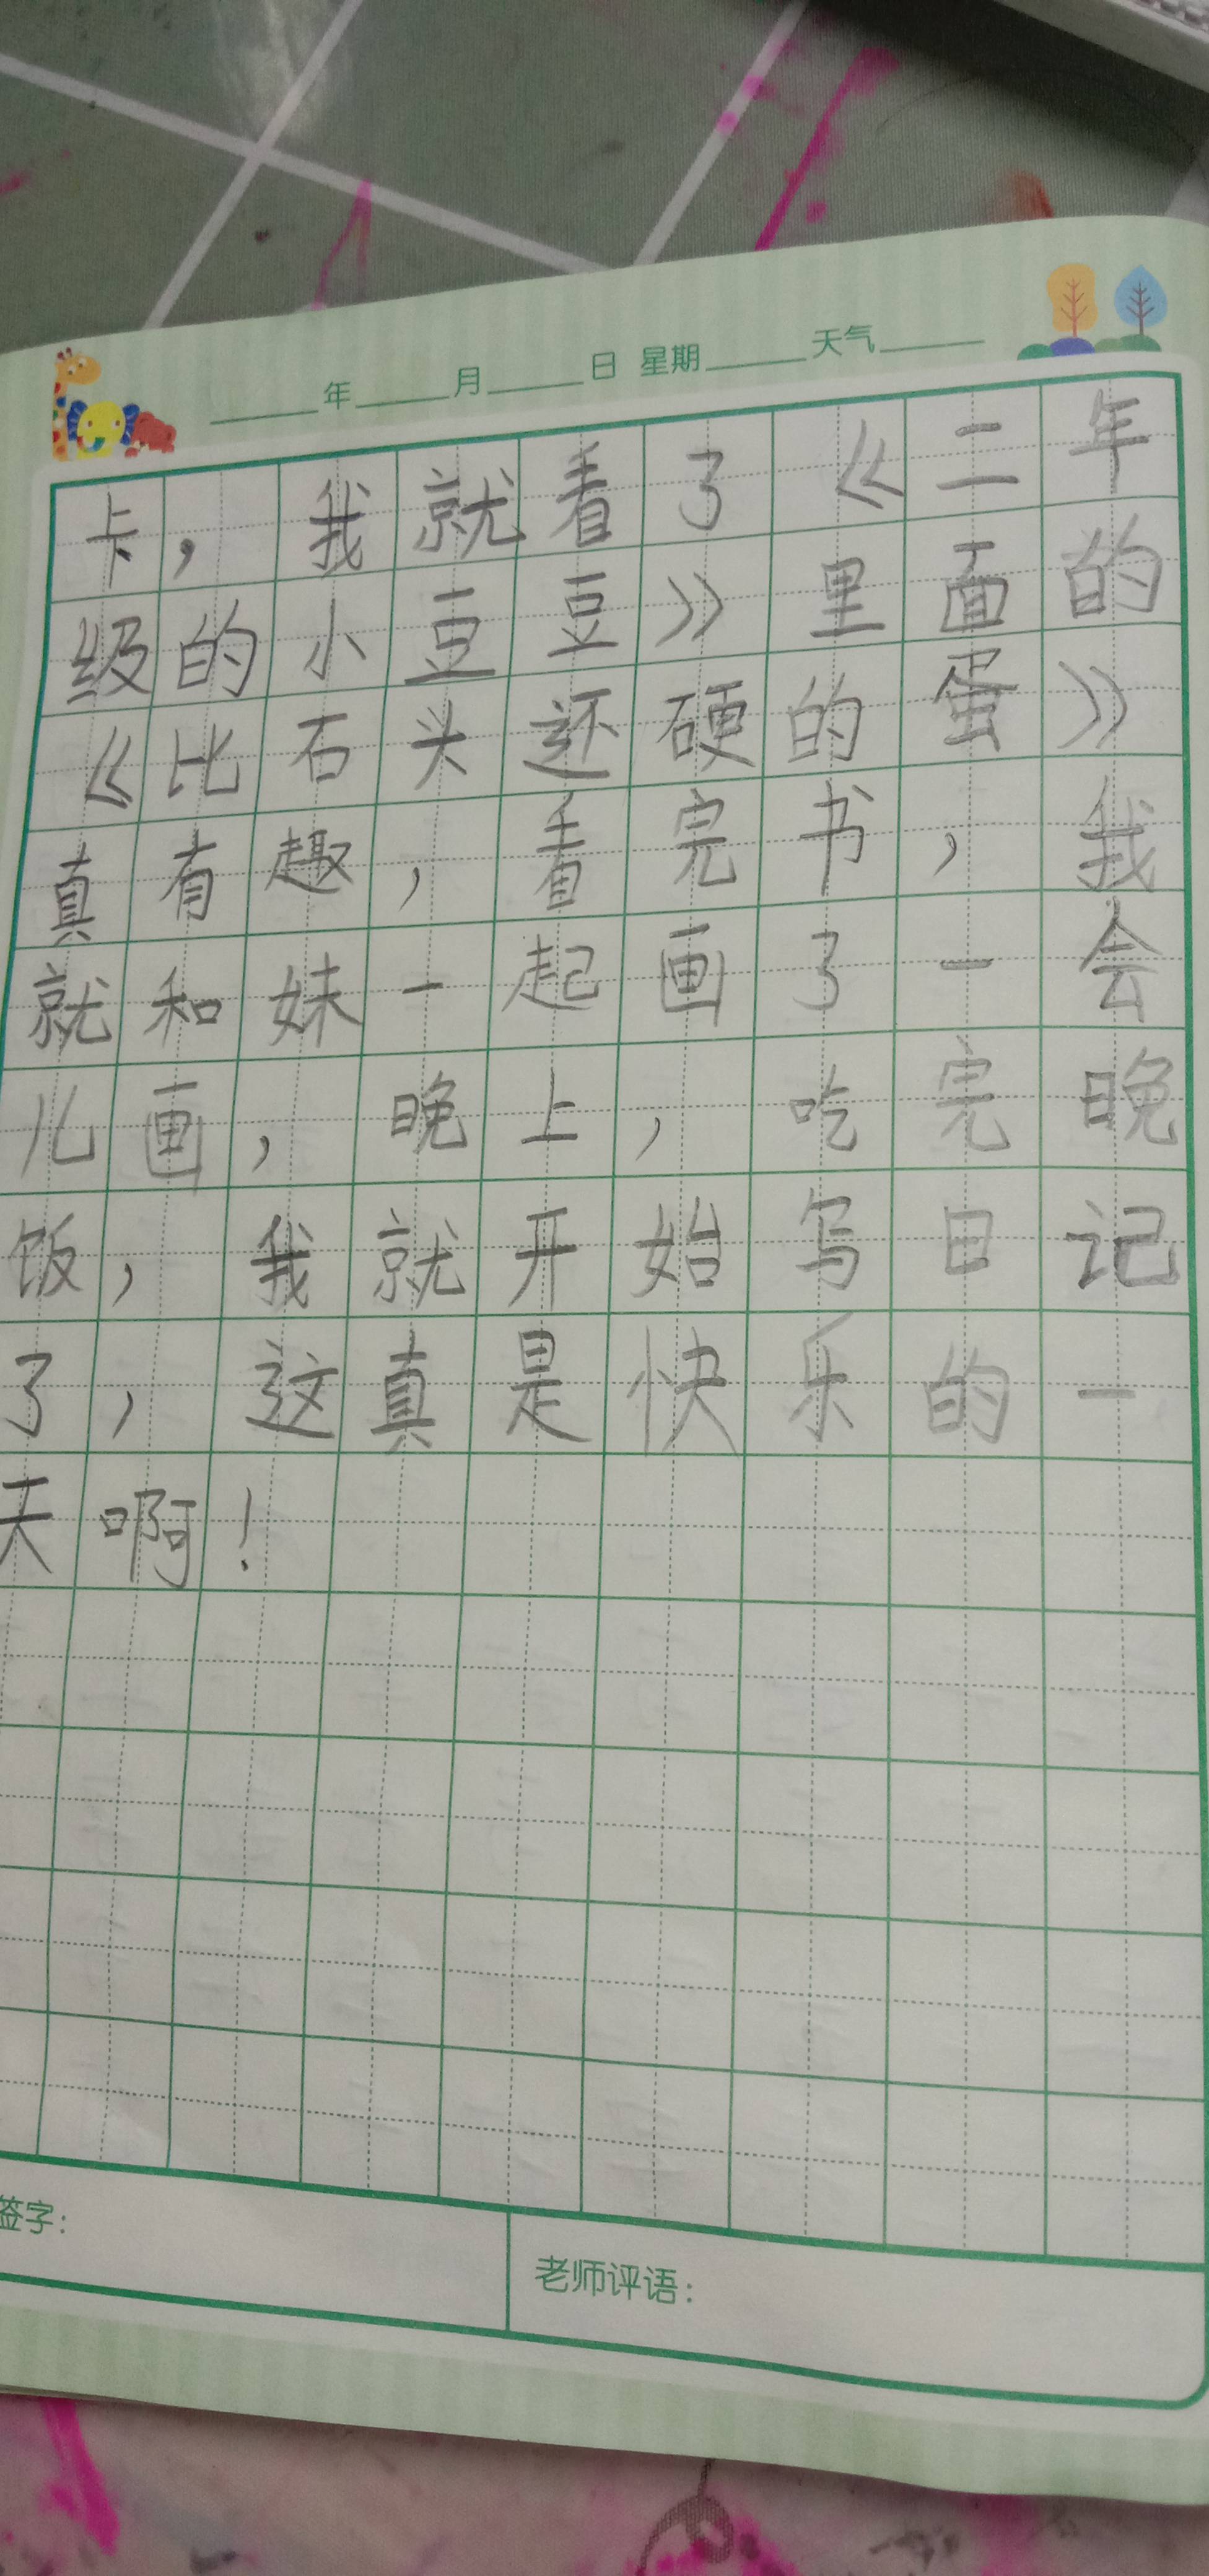 年 月 日 星期 天气
卡，我就看了《二年
级的小豆豆》里面的
《比石头还硬的蛋》
真有趣，看完书，我
就和妹一起画了一会
儿画，晚上，吃完晚
饭，我就开始写日记
了，这真是快乐的一
天啊！
签字：
老师评语：